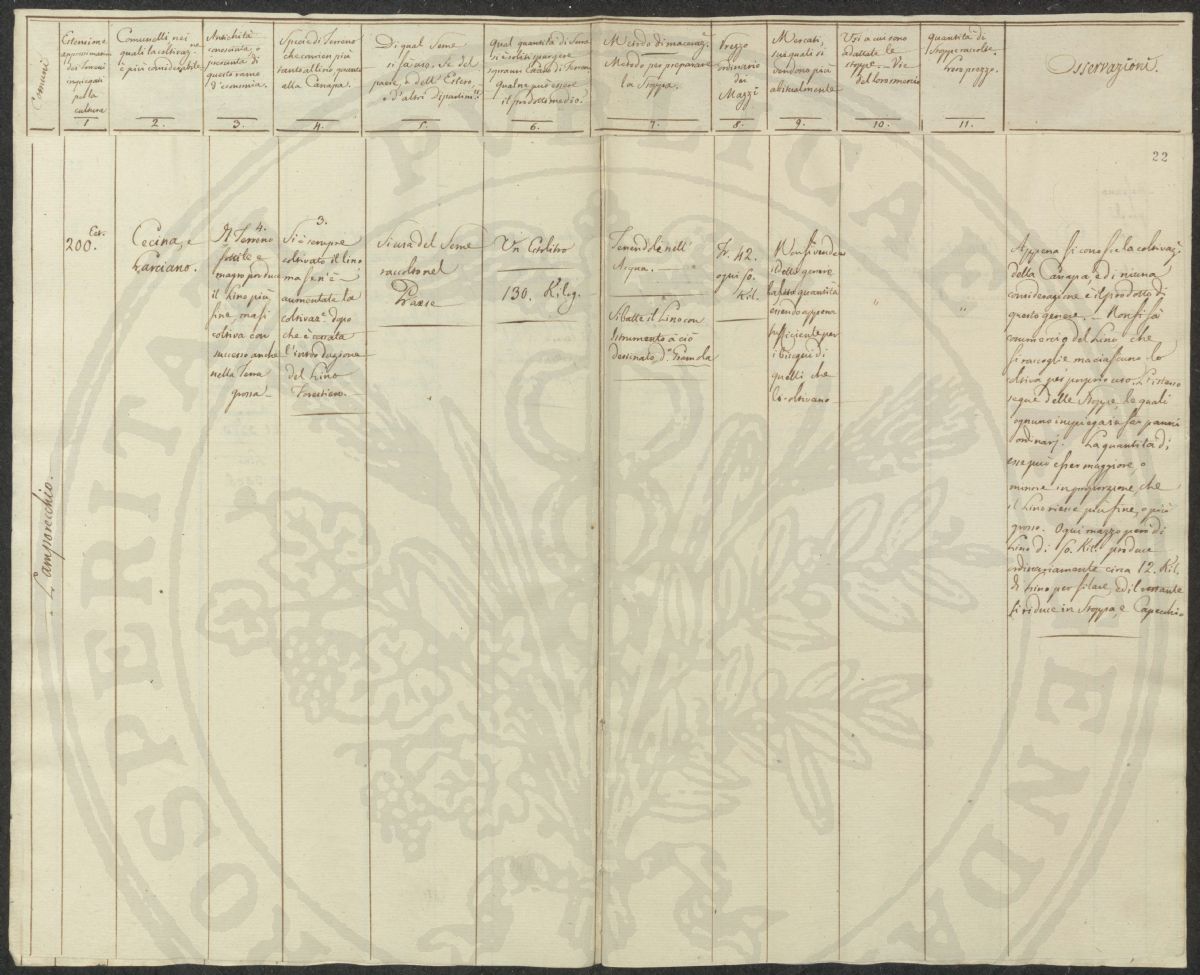 Comuni
Estensione
approssimativa
dei Terreni
impiegati
nella
cultura
1
Comunelli nei
quali la coltivaz.ne
è più considerabile
2.
Antichità
conosciuta, o
presunta di
questo ramo
d'economia.
3.
Specie di Terreno
che conven più
tanto al lino, quanto
alla Canapa.
4.
Di qual Seme
si fa uso, Se del
paese, o dell'Estero,
e d'altri Dipartim.ti
5.
Qual quantità di Seme
si è soliti spargere
sopra un Ettaro di Terreno
Qual ne può essere
il prodotto medio?
6.
Metodo di maceraz.
Metodo per preparare
la Stoppa.
7.
Prezzo
ordinario
dei
Mazzi
8.
Mercati,
sui quali si
vendono più
abitualmente
9.
Usi a cui sono
adattate le
stoppe. Vie
del loro smercio
10.
Quantità di
Stoppe raccolte.
Loro prezzo.
11.
Osservazioni.
22
Lamporecchio.
Ett.
200.
Cecina, e
Larciano.
4.
Il Terreno
sottile e
magro produce
il Lino più
fine, ma si
coltiva con
successo anche
nella Terra
grossa
3.
Si è sempre
coltivato il lino
ma se n'è
aumentata la
coltivaz.e dopo
che è cessata
l'introduzione
del Lino
Forestiero.
Si usa del Seme
raccolto nel
Paese
"
Un Ettolitro
130. Kilog.
Tenendolo nell'
Acqua.
Si batte il Lino con
Istrumento a ciò
destinato, d.o Gramola
Fr. 42.
ogni 50.
Kil.
Non si vende
di detto genere
quantità
essendo appena
sufficiente per
i bisogni di
quelli che
lo coltivano
"
"
Appena si conosce la coltivaz.
della Canapa, e di niuna
considerazione è il prodotto di
questo genere. Non si fà
commercio del Lino che
si raccoglie ma ciascuno lo
coltiva per proprio uso. L'istesso
segue delle Stoppe, le quali
ognuno impiega in far panni
ordinarj. La quantità di
esse può esser maggiore, o
minore in proporzione, che
il Lino riesce più fine, o più
grosso. Ogni mazzo però di
Lino di 50. Kil. produce
ordinariamente circa 12. Kil.
di Lino per filare, ed il restante
si riduce in Stoppa, e Capecchio